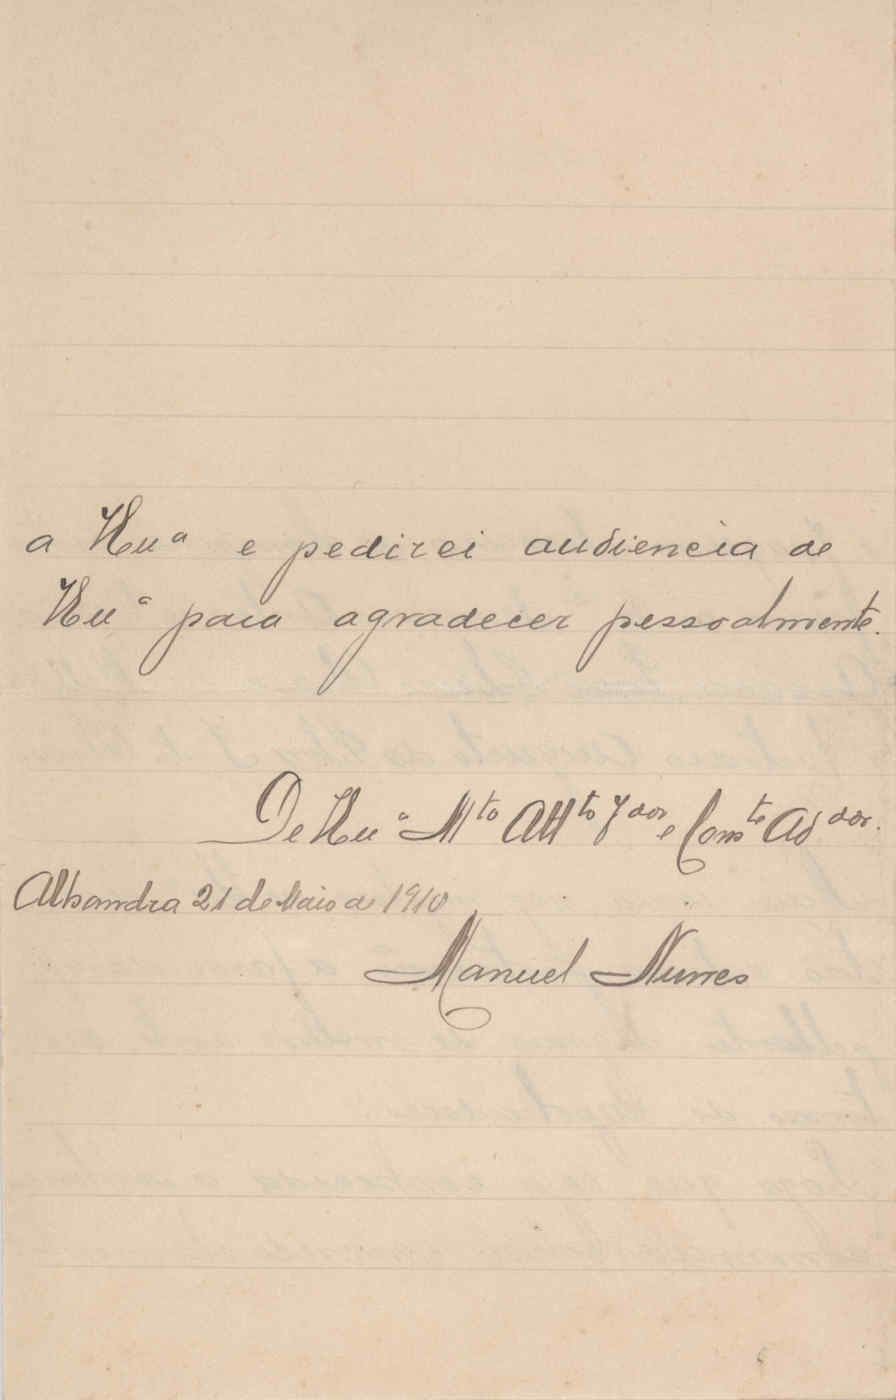 a V.Exª e pedirei audiencia de
V.Exª para agradecer pessoalmente.
De V.Exª Mto Attto Vdor e Conste Addor.
Alhandra 21 de Maio de 1910
Manuel Nunes